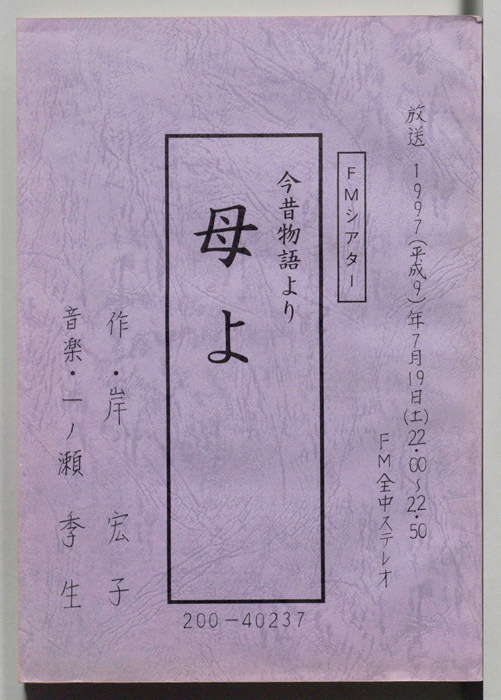 放送 1997(平成9)年7月19日(土)22.00〜22.50
FM全中ステレオ
FMシアター
今昔物語より
母よ
作・岸 宏子
音楽・一ノ瀬 季生
200-40237